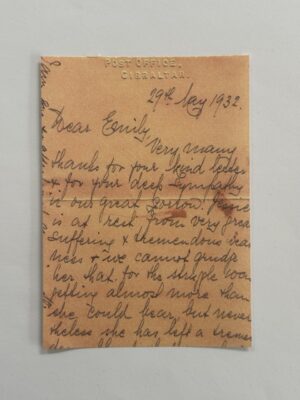 POST OFFICE,
GIBRALTAR.
29th May 1932.
Dear Emily,
Very many
thanks for your kind letter
& for your deep sympathy
in our great sorrow.
is at rest from very great
suffering & tremendous weak
ness & we cannot grudge
her that for the struggle was
getting almost more than
she could bear, but never
theless she has left a tremen